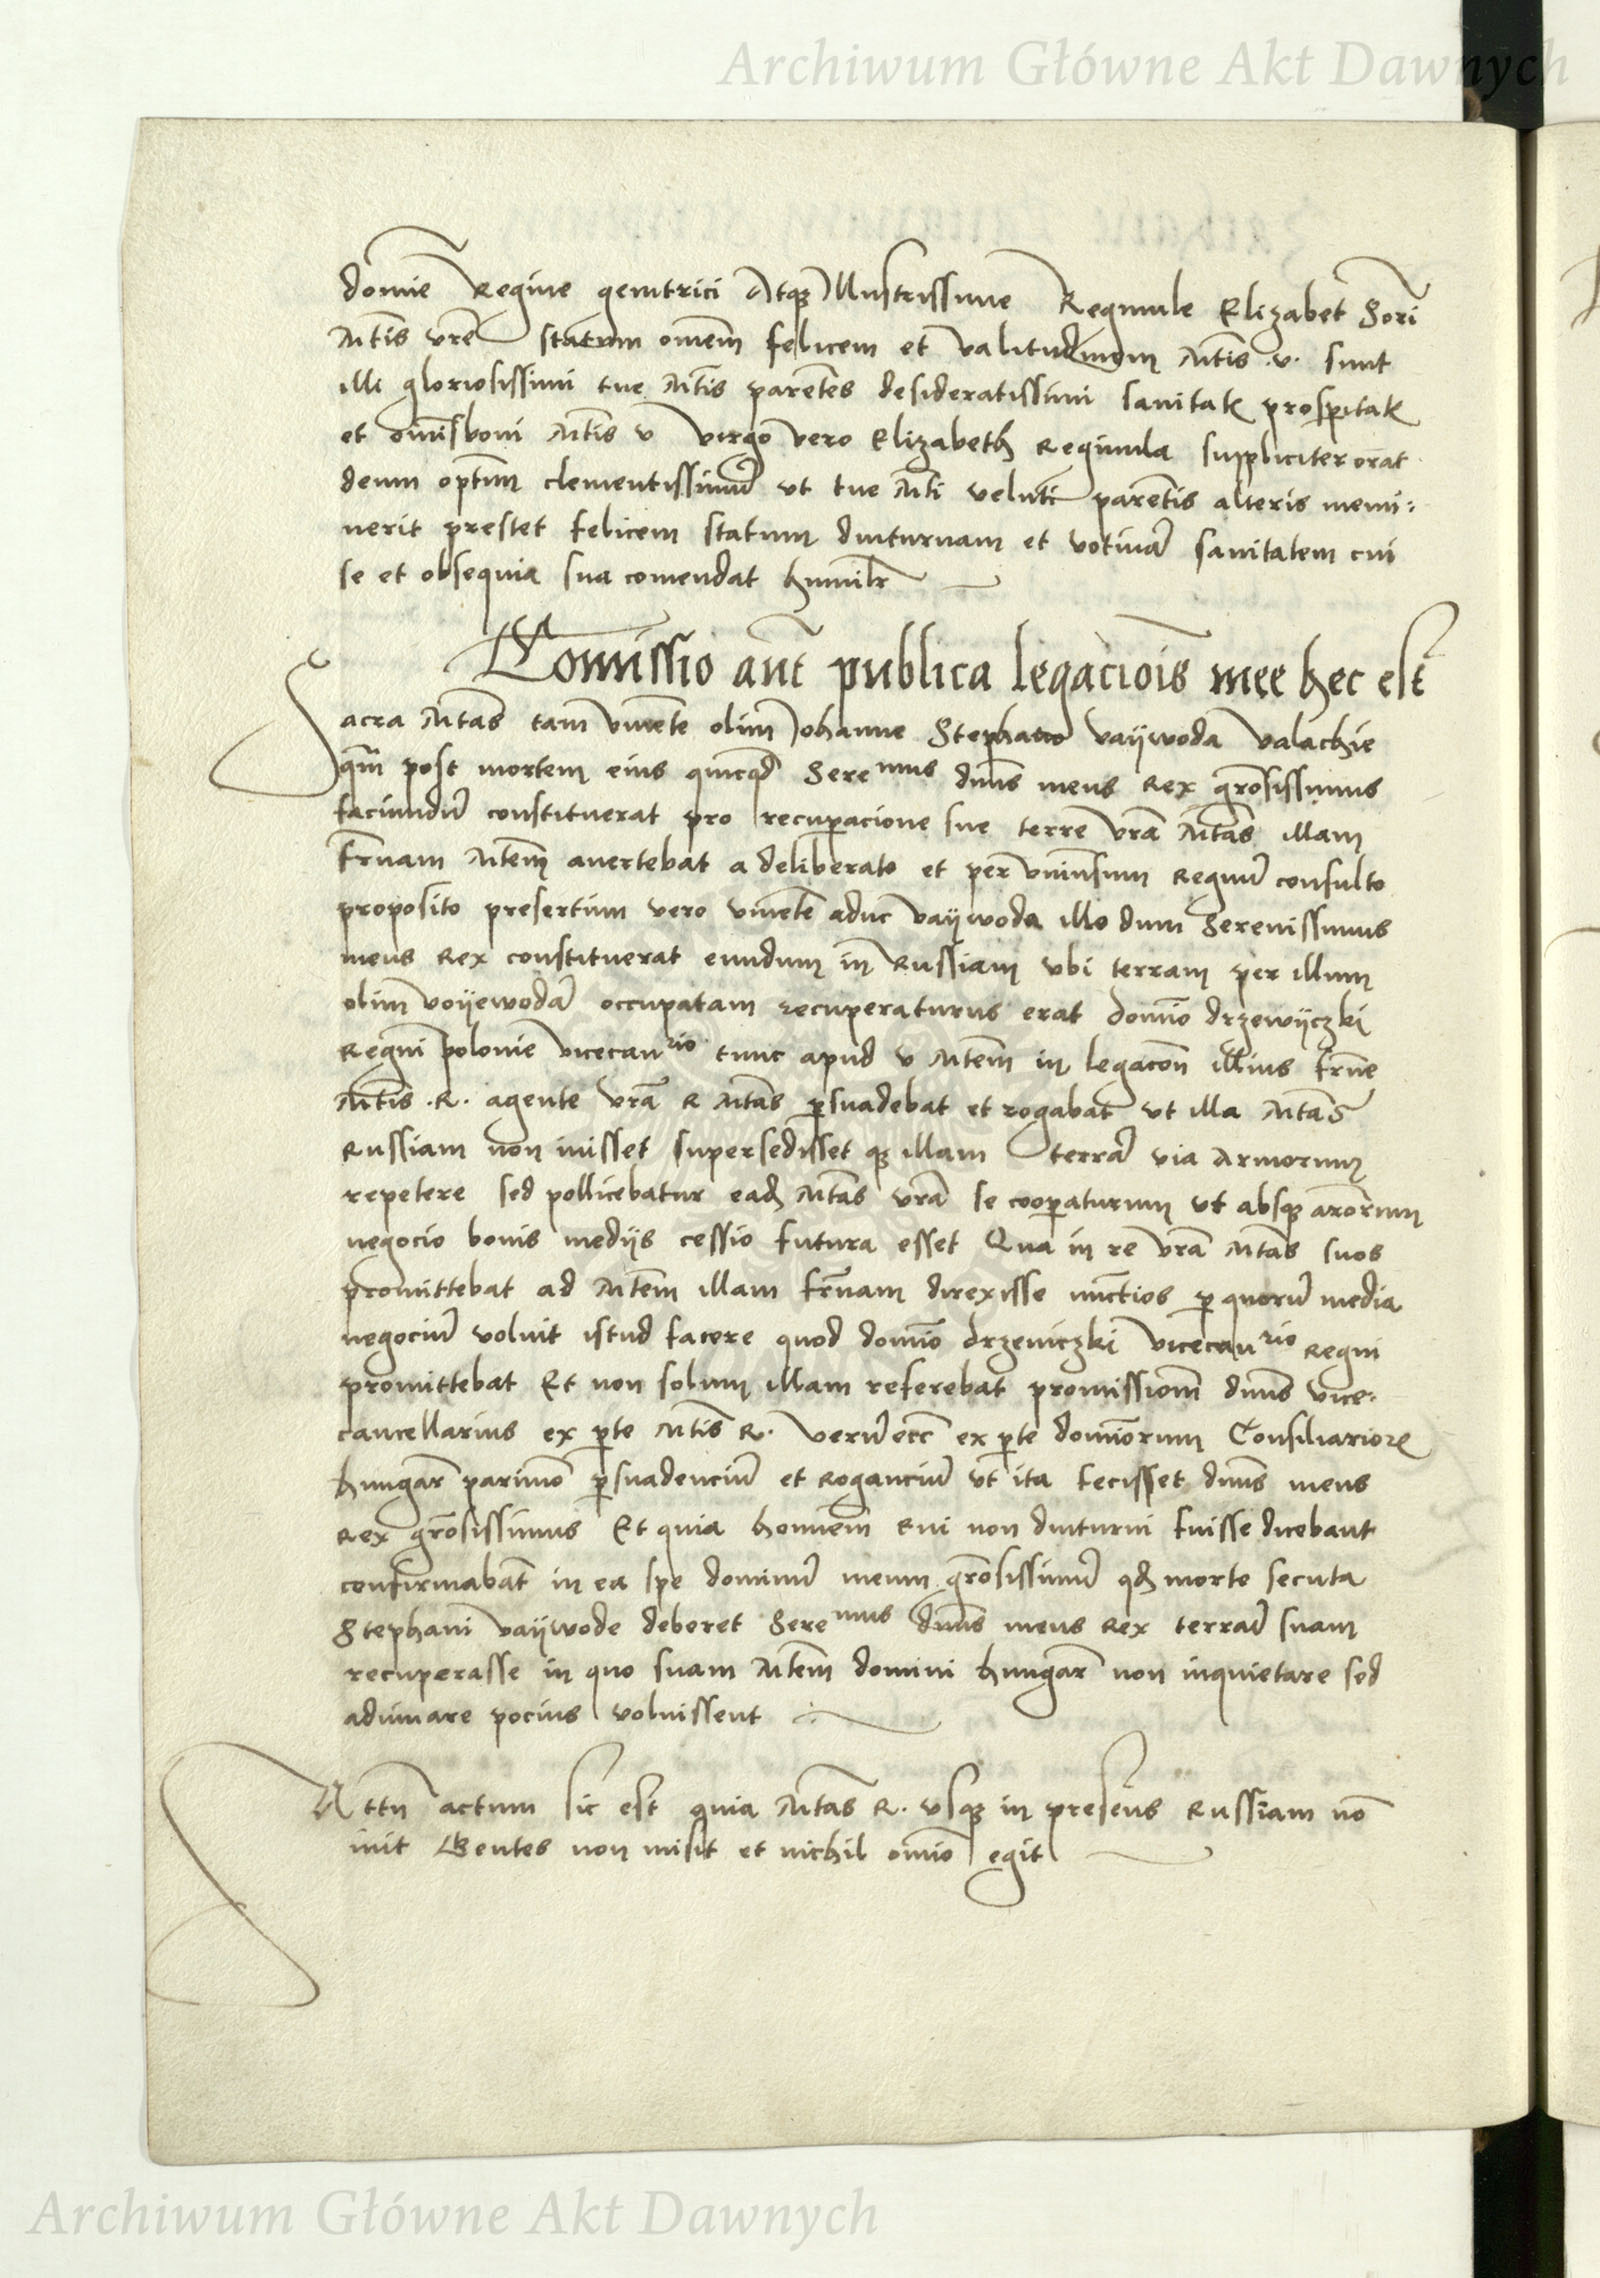 Archiwum Główne Akt Dawnych
domie Regine genitrici Atq Illustrissime Reginule Elizabet Sori
Mtis vre statum omem felicem et valitudinem Mtis .v. sunt
illi gloriosissimi tue Mtis parentes desideratissimi sanitate prosperitate
et omisboni Mtis v virgo vero Elizabeth Reginula suppliciter orat
deum optimum clementissimum ut tue Mti veluti parentis alteris memi:
nerit prestet felicem statum diuturnam et votivam sanitatem cui
se et obsequia sua comendat humilr
Comissio aut publica legaciois mee hec est
Sacra Mtas tam vivente olim Johanne Stephano vaÿwoda valachie
qm post mortem eius quicqd Sere nus dnus meus Rex grosissimus
faciundum constituerat pro recuperacione sue terre vra Mtas illam
frnam Mtem avertebat a deliberato et per universum Regnum consulto
proposito presertim vero vivente aduc vaÿwoda illo dum Serenissimus
meus Rex constituerat eundum in Russiam ubi terram per illum
olim voÿewodam occupatam recuperaturus erat domio drzewÿczki
Regni polonie vicecan rio tunc apud v Mtem in legacon illius frne
Mtis .R. agente vra R Mtas persuadebat et rogabat ut illa Mtas
Russiam non ivisset supersedisset q illam terram via Armorum
repetere sed pollicebatur ead Mtas vra se cooperaturum ut absq armorum
negocio bonis medÿs cessio futura esset Qua in re vra Mtas suos
promittebat ad Mtem illam frnam direxisse nunctios per quorum media
negocium voluit istud facere quod domio drzeviczki vicecan rio Regni
promittebat Et non solum illam referebat promissionem dnus vice:
cancellarius ex parte Mtis R. verum ecc ex parte dominorum Consiliariorum
hungar parimo persuadencium et Rogancium ut ita fecisset dnus meus
Rex grosissimus Et quia hominem evi non diuturni fuisse dicebant
confirmabant in ea spe dominum meum grosissimum qd morte secuta
Stephani vaÿwode deberet Sere nus dnus meus Rex terram suam
recuperasse in quo suam Mtem domini hungar non inquietare sed
adiuvare pocius voluissent
Attn actum sic est quia Mtas R. usq in presens Russiam no
ivit Gentes non misit et nichil omio egit
Archiwum Główne Akt Dawnych